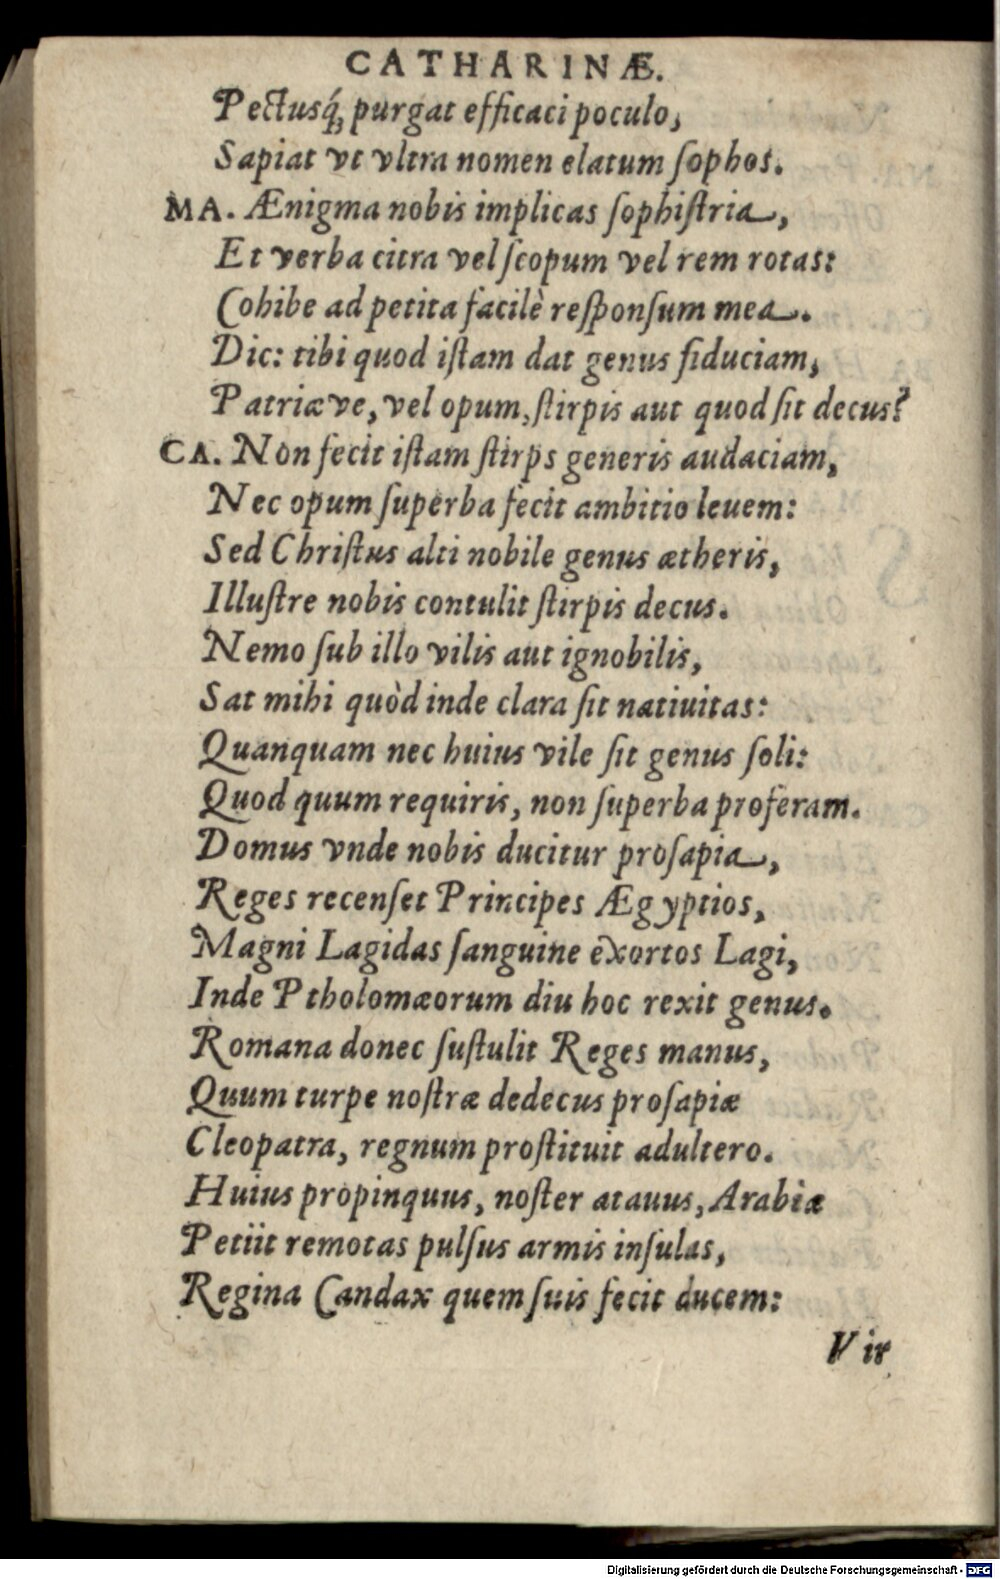 CATHARINÆ.
Pectusq́; purgat efficaci poculo,
Sapiat vt vltra nomen elatum ſophos.
MA. Ænigma nobis implicas ſophiſtria,
Et verba citra vel ſcopum vel rem rotas:
Cohibe ad petita facilè reſponſum mea.
Dic: tibi quod iſtam dat genus fiduciam,
Patriæ ve, vel opum, ſtirpis aut quod ſit decus?
CA. Non fecit iſtam ſtirps generis audaciam,
Nec opum ſuperba fecit ambitio leuem:
Sed Chriſtus alti nobile genus ætheris,
Illuſtre nobis contulit ſtirpis decus.
Nemo ſub illo vilis aut ignobilis,
Sat mihi quòd inde clara ſit natiuitas:
Quanquam nec huius vile ſit genus ſoli:
Quod quum requiris, non ſuperba proferam.
Domus vnde nobis ducitur proſapia,
Reges recenſet Principes Ægyptios,
Magni Lagidas ſanguine exortos Lagi,
Inde Ptholomæorum diu hoc rexit genus.
Romana donec ſuſtulit Reges manus,
Quum turpe noſtræ dedecus proſapiæ
Cleopatra, regnum proſtituit adultero.
Huius propinquus, noſter atauus, Arabiæ
Petiit remotas pulſus armis inſulas,
Regina Candax quem ſuis fecit ducem:
Vir
Digitalisierung gefördert durch die Deutsche Forschungsgemeinschaft - DFG